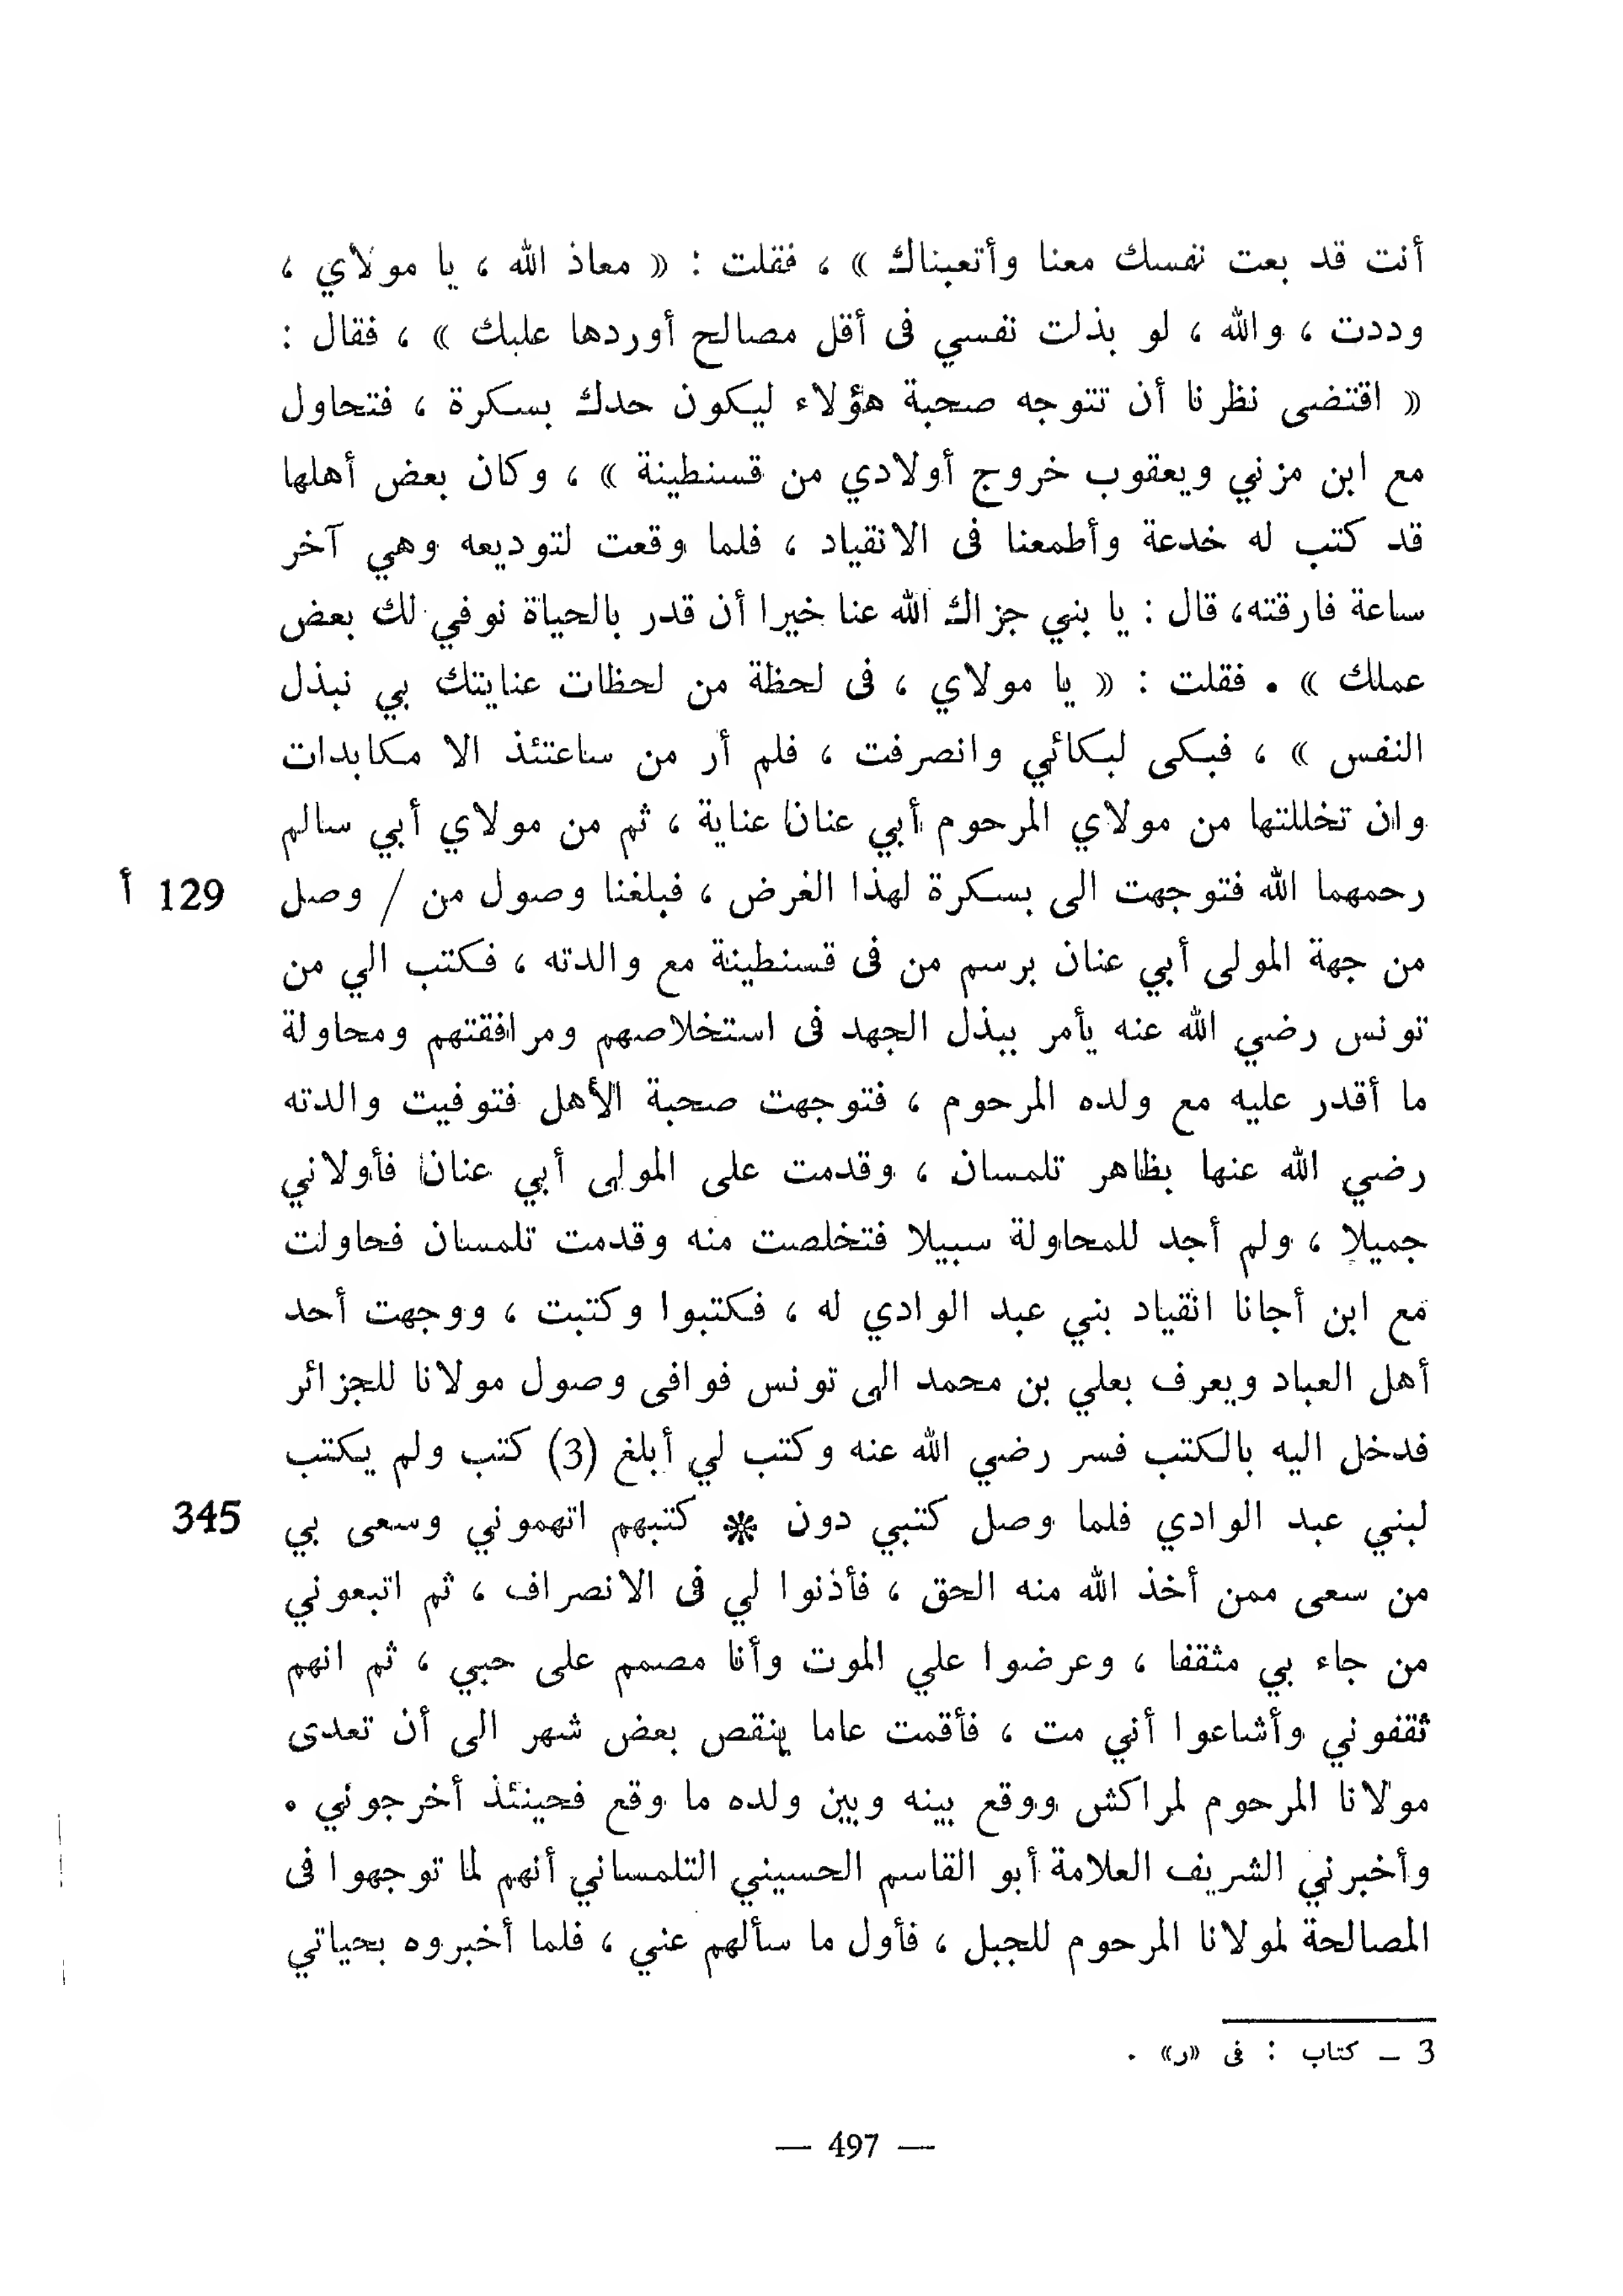 أنت قد بعت نفسك معنا وأتعبناك » ، فقلت : « معاذ الله ، يا مولاي ،
وددت ، والله ، لو بذلت نفسي فى أقل مصالح أوردها عليك » ، فقال :
« اقتضى نظرنا أن تتوجه صحبة هؤلاء ليكون حدك بسكرة ، فتحاول
مع ابن مزني ويعقوب خروج أولادي من قسنطينة » ، وكان بعض أهلها
قد كتب له خدعة وأطمعنا فى الانقياد ، فلما وقعت لتوديعه وهي آخر
ساعة فارقته، قال : يا بني جزاك الله عنا خيرا أن قدر بالحياة نوفي لك بعض
عملك » . فقلت : « يا مولاي ، فى لحظة من لحظات عنايتك بي نبذل
النفس » ، فبكى لبكائي وانصرفت ، فلم أر من ساعتئذ الا مكابدات
وان تخللتها من مولاي المرحوم أبي عنان عناية ، ثم من مولاي أبي سالم
رحمهما الله فتوجهت الى بسكرة لهذا الغرض ، فبلغنا وصول من / وصل 129 أ
من جهة المولى أبي عنان برسم من فى قسنطينة مع والدته ، فكتب الي من
تونس رضي الله عنه يأمر ببذل الجهد فى استخلاصهم ومرافقتهم ومحاولة
ما أقدر عليه مع ولده المرحوم ، فتوجهت صحبة الأهل فتوفيت والدته
رضي الله عنها بظاهر تلمسان ، وقدمت على المولى أبي عنان فأولاني
جميلا ، ولم أجد للمحاولة سبيلا فتخلصت منه وقدمت تلمسان فحاولت
مع ابن أجانا انقياد بني عبد الوادي له ، فكتبوا وكتبت ، ووجهت أحد
أهل العباد ويعرف بعلي بن محمد الى تونس فوافى وصول مولانا للجزائر
فدخل اليه بالكتب فسر رضي الله عنه وكتب لي أبلغ (3) كتب ولم يكتب
لبني عبد الوادي فلما وصل كتبي دون * كتبهم اتهموني وسعى بي 345
من سعى ممن أخذ الله منه الحق ، فأذنوا لي فى الانصراف ، ثم اتبعوني
من جاء بي مثقفا ، وعرضوا علي الموت وأنا مصمم على حبي ، ثم انهم
ثقفوني وأشاعوا أني مت ، فأقمت عاما ينقص بعض شهر الى أن تعدى
مولانا المرحوم لمراكش ووقع بينه وبين ولده ما وقع فحينئذ أخرجوني .
وأخبرني الشريف العلامة أبو القاسم الحسيني التلمساني أنهم لما توجهوا فى
المصالحة لمولانا المرحوم للجبل ، فأول ما سألهم عني ، فلما أخبروه بحياتي
3 – كتاب : فى «ر» .
— 497 —